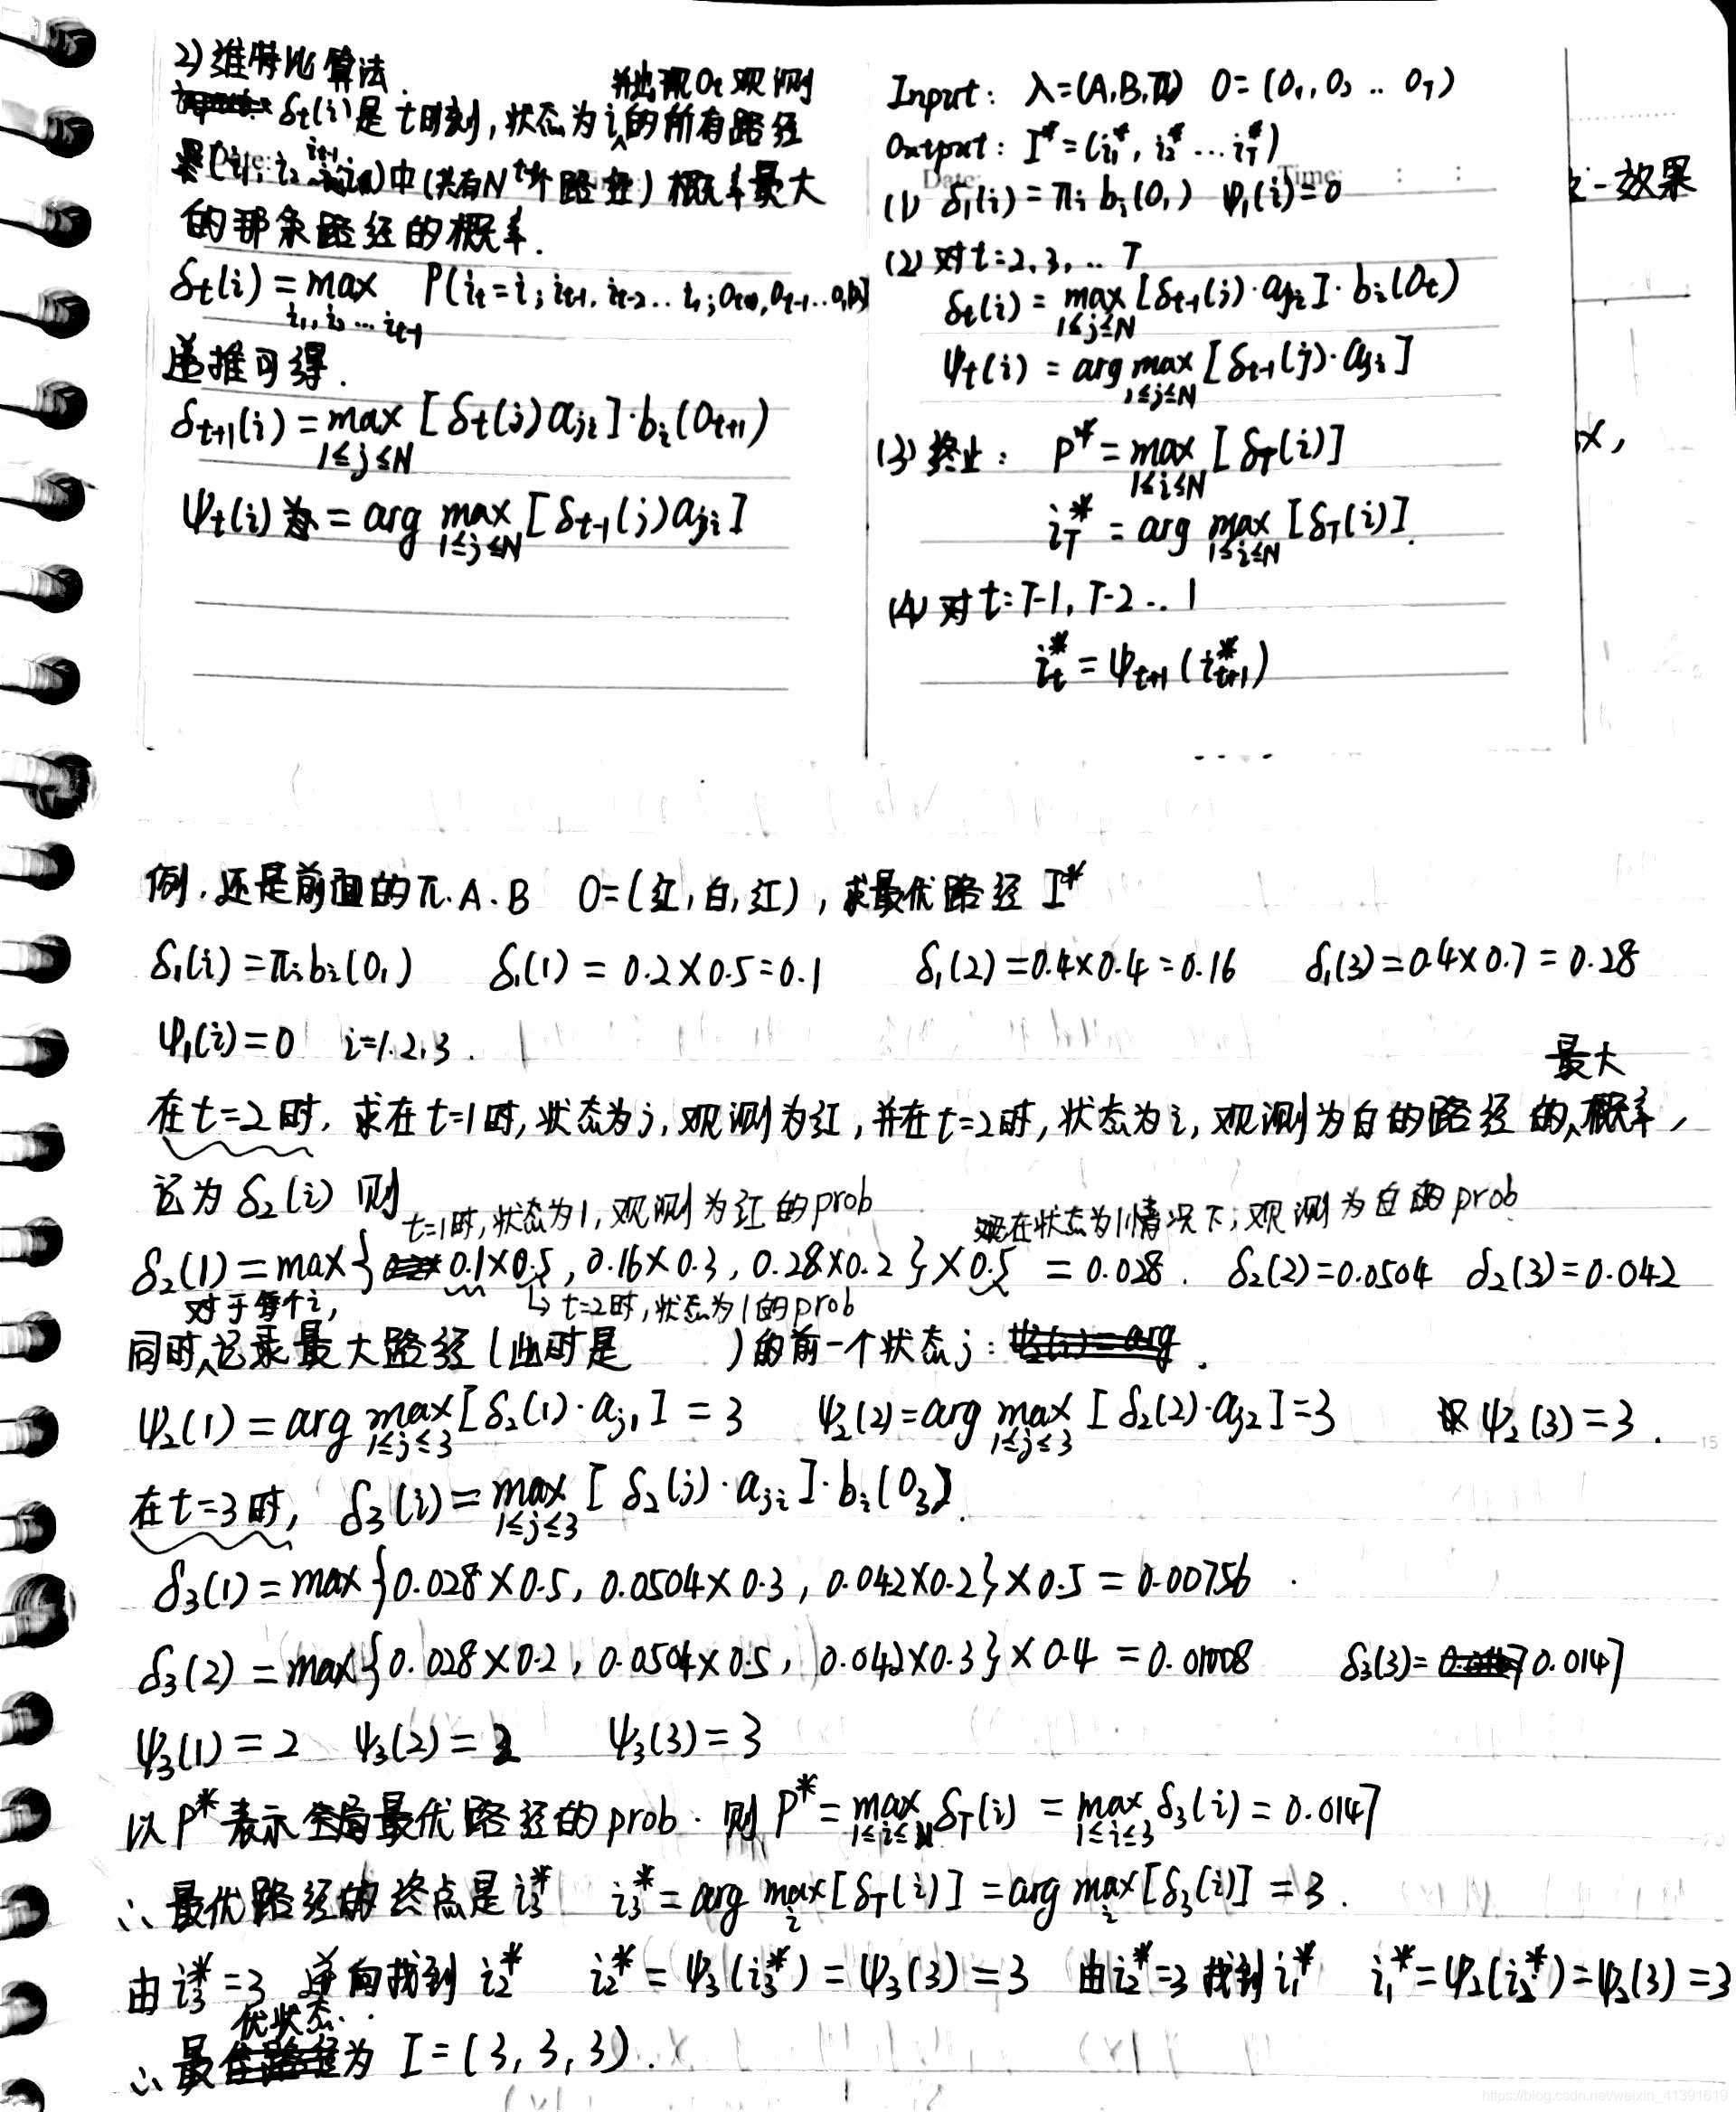 2) 维特比算法.
并出现Ot观测
δt(i)是t时刻,状态为i的所有路径
(i1, i2 … it-1)中(共有N^t-1个路径)概率最大
的那条路径的概率.
δt(i) = max P(it=i; it-1, it-2 … i1; Ot, Ot-1 … O1|λ)
i1, i2 … it-1
递推可得.
δt+1(i) = max [δt(j) aji]·bi(Ot+1)
1≤j≤N
Ψt(i) = arg max [δt-1(j) aji]
1≤j≤N
Input: λ=(A,B,π) O=(O1, O2 .. OT)
Output: I*=(i1*, i2* … iT*)
Date: Time: : :
(1) δ1(i) = πi bi(O1) Ψ1(i)=0
(2) 对t=2,3,.. T
δt(i) = max [δt-1(j)·aji]·bi(Ot)
1≤j≤N
Ψt(i) = arg max [δt-1(j)·aji]
1≤j≤N
(3) 终止: P* = max [δT(i)]
1≤i≤N
iT* = arg max [δT(i)].
1≤i≤N
(4) 对t=T-1, T-2 .. 1
it* = Ψt+1(it+1*)
一效果
例. 还是前面的π.A.B O=(红,白,红), 求最优路径 I*
δ1(i)=πibi(O1) δ1(1) = 0.2×0.5=0.1 δ1(2)=0.4×0.4=0.16 δ1(3)=0.4×0.7=0.28
Ψ1(i)=0 i=1.2.3.
最大
在t=2时, 求在t=1时,状态为j,观测为红,并在t=2时,状态为i,观测为白的路径的概率,
记为 δ2(i) 则
t=1时,状态为1,观测为红的prob 现在状态为1情况下,观测为白的prob
δ2(1) = max{0.1×0.5, 0.16×0.3, 0.28×0.2}×0.5 = 0.028. δ2(2)=0.0504 δ2(3)=0.042
对于每个i, ↳ t=2时,状态为1的prob
同时记录最大路径(此时是 )的前一个状态j: .
Ψ2(1) = arg max [δ2(1)·aj1] = 3 Ψ2(2)=arg max [δ2(2)·aj2]=3 Ψ2(3)=3.
1≤j≤3 1≤j≤3
在t=3时, δ3(i)=max [δ2(j)·aji]·bi(O3).
1≤j≤3
δ3(1) = max{0.028×0.5, 0.0504×0.3, 0.042×0.2}×0.5 = 0.00756.
δ3(2) = max{0.028×0.2, 0.0504×0.5, 0.042×0.3}×0.4 = 0.01008 δ3(3)= 0.0147
Ψ3(1)=2 Ψ3(2)=2 Ψ3(3)=3
以P*表示全局最优路径的prob. 则 P*=max δT(i) = max δ3(i) = 0.0147
1≤i≤N 1≤i≤3
∴ 最优路径的终点是i3* i3* = arg max[δT(i)] = arg max[δ3(i)] = 3.
i i
由i3*=3 逆向找到 i2* i2* = Ψ3(i3*) = Ψ3(3) = 3 由i2*=3 找到i1* i1*=Ψ2(i2*)=Ψ2(3)=3
优状态
∴ 最为 I=(3,3,3).
https://blog.csdn.net/weixin_41391619